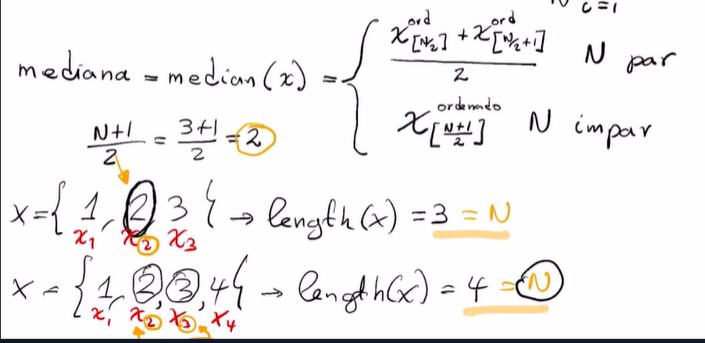 c=1
mediana = median(x) = { (x^ord_[N/2] + x^ord_[N/2+1]) / 2 N par
x^ordenado_[(N+1)/2] N impar
(N+1)/2 = (3+1)/2 = 2
x={ 1, 2 3 } → length(x) = 3 = N
x1 x2 x3
x = { 1, 2, 3, 4 } → length(x) = 4 = N
x1 x2 x3 x4